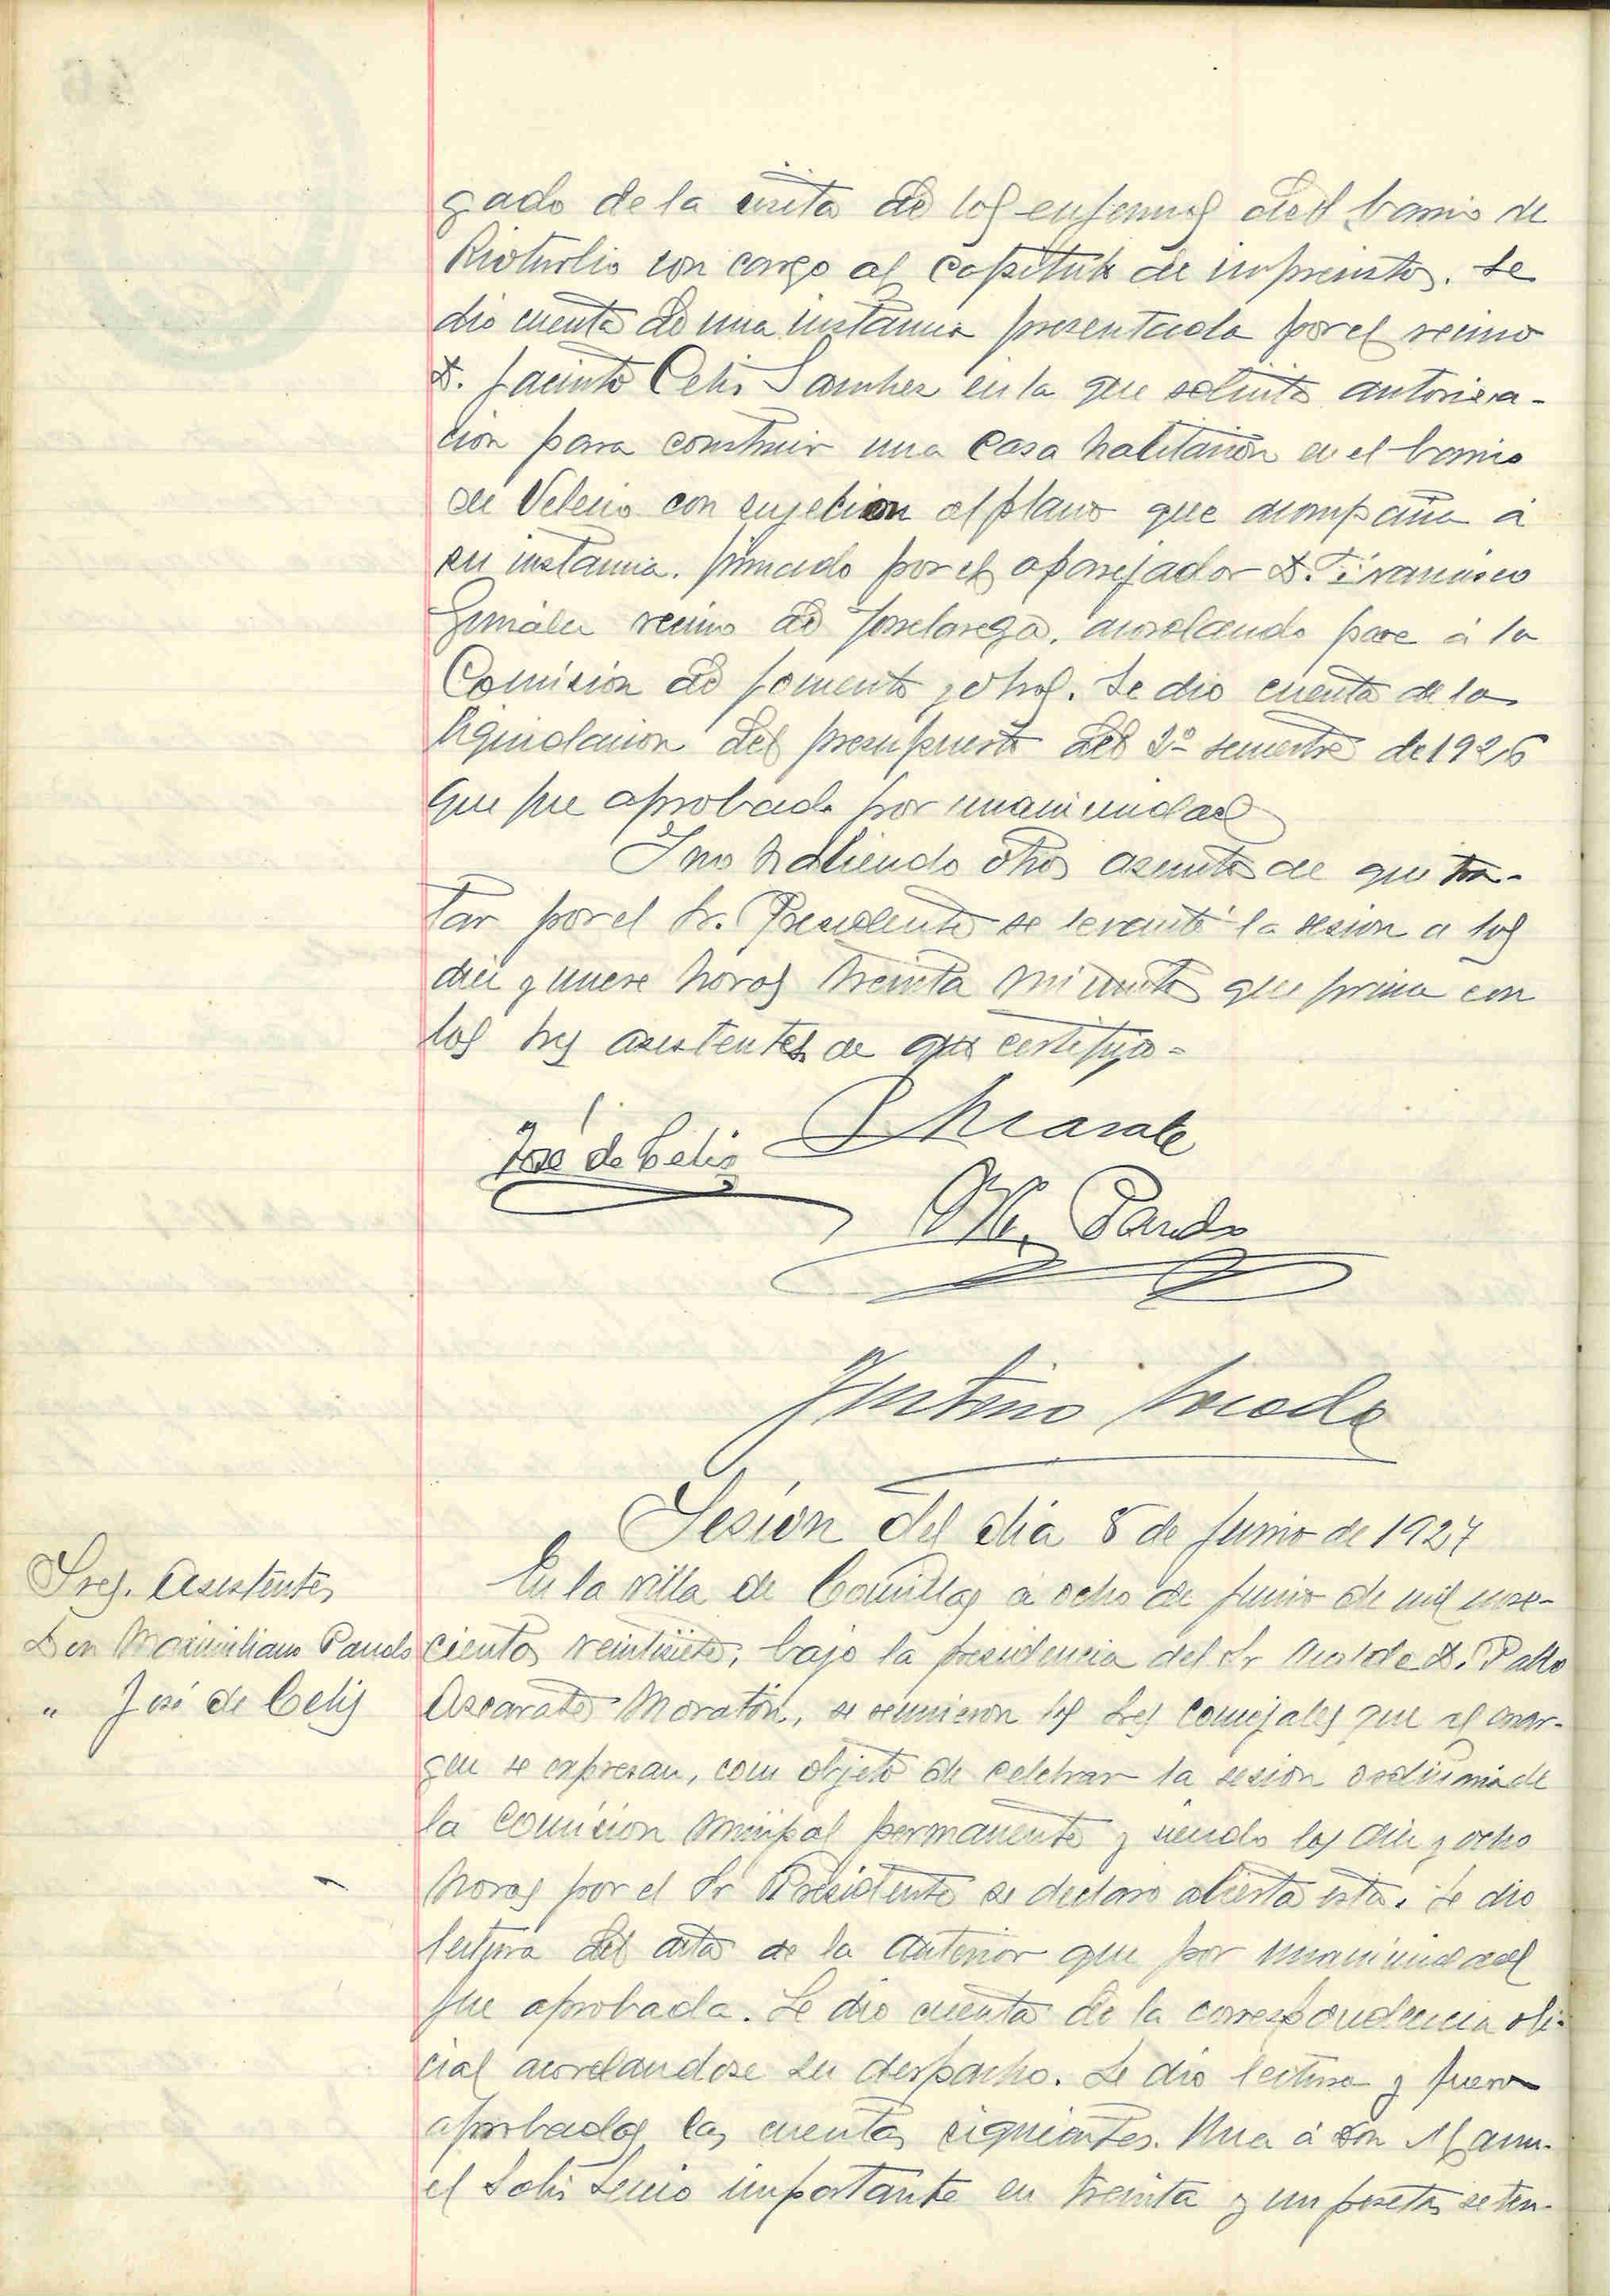 gado de la visita de los enfermos del barrio de
Rioturbio con cargo al capitulo de imprevistos. Se
dio cuenta de una instancia presentada por el vecino
D. Jacinto Celis Sanchez en la que solicita autoriza-
ción para construir una casa habitación en el barrio
de Velecio con sujecion al plano que acompaña á
su instancia. firmado por el aparejador D. Francisco
González vecino de Torrelavega, acordando pase á la
Comisión de fomento y obras. Se dio cuenta de la
liquidacion del presupuesto del 2º semestre de 1926
que fue aprobada por unanimidad
Y no habiendo otros asuntos de que tra-
tar por el Sr. Presidente se levantó la sesion a las
diez y nueve horas treinta minutos que firma con
los Sres asistentes de que certifico=
José de Celis
P Azcarate
M. Pando
Sesión del dia 8 de Junio de 1927
Sres. Asistentes
Don Maximiliano Pando
" José de Celis
En la villa de Comillas á ocho de Junio de mil nove-
cientos veintisiete, bajo la presidencia del Sr Alcalde D. Pablo
Azcarate Moratón, se reunieron los Sres Concejales que al mar-
gen se expresan, con objeto de celebrar la sesion ordinaria de
la Comision Municipal permanente y siendo las diez y ocho
horas por el Sr Presidente se declaro abierta esta. Se dio
lectura del acta de la anterior que por unanimidad
fue aprobada. Se dio cuenta de la correspondencia ofi-
cial acordandose su despacho. Se dio lectura y fueron
aprobadas las cuentas siguientes. Una á Don Manu-
el Solis importante en treinta y un pesetas seten-